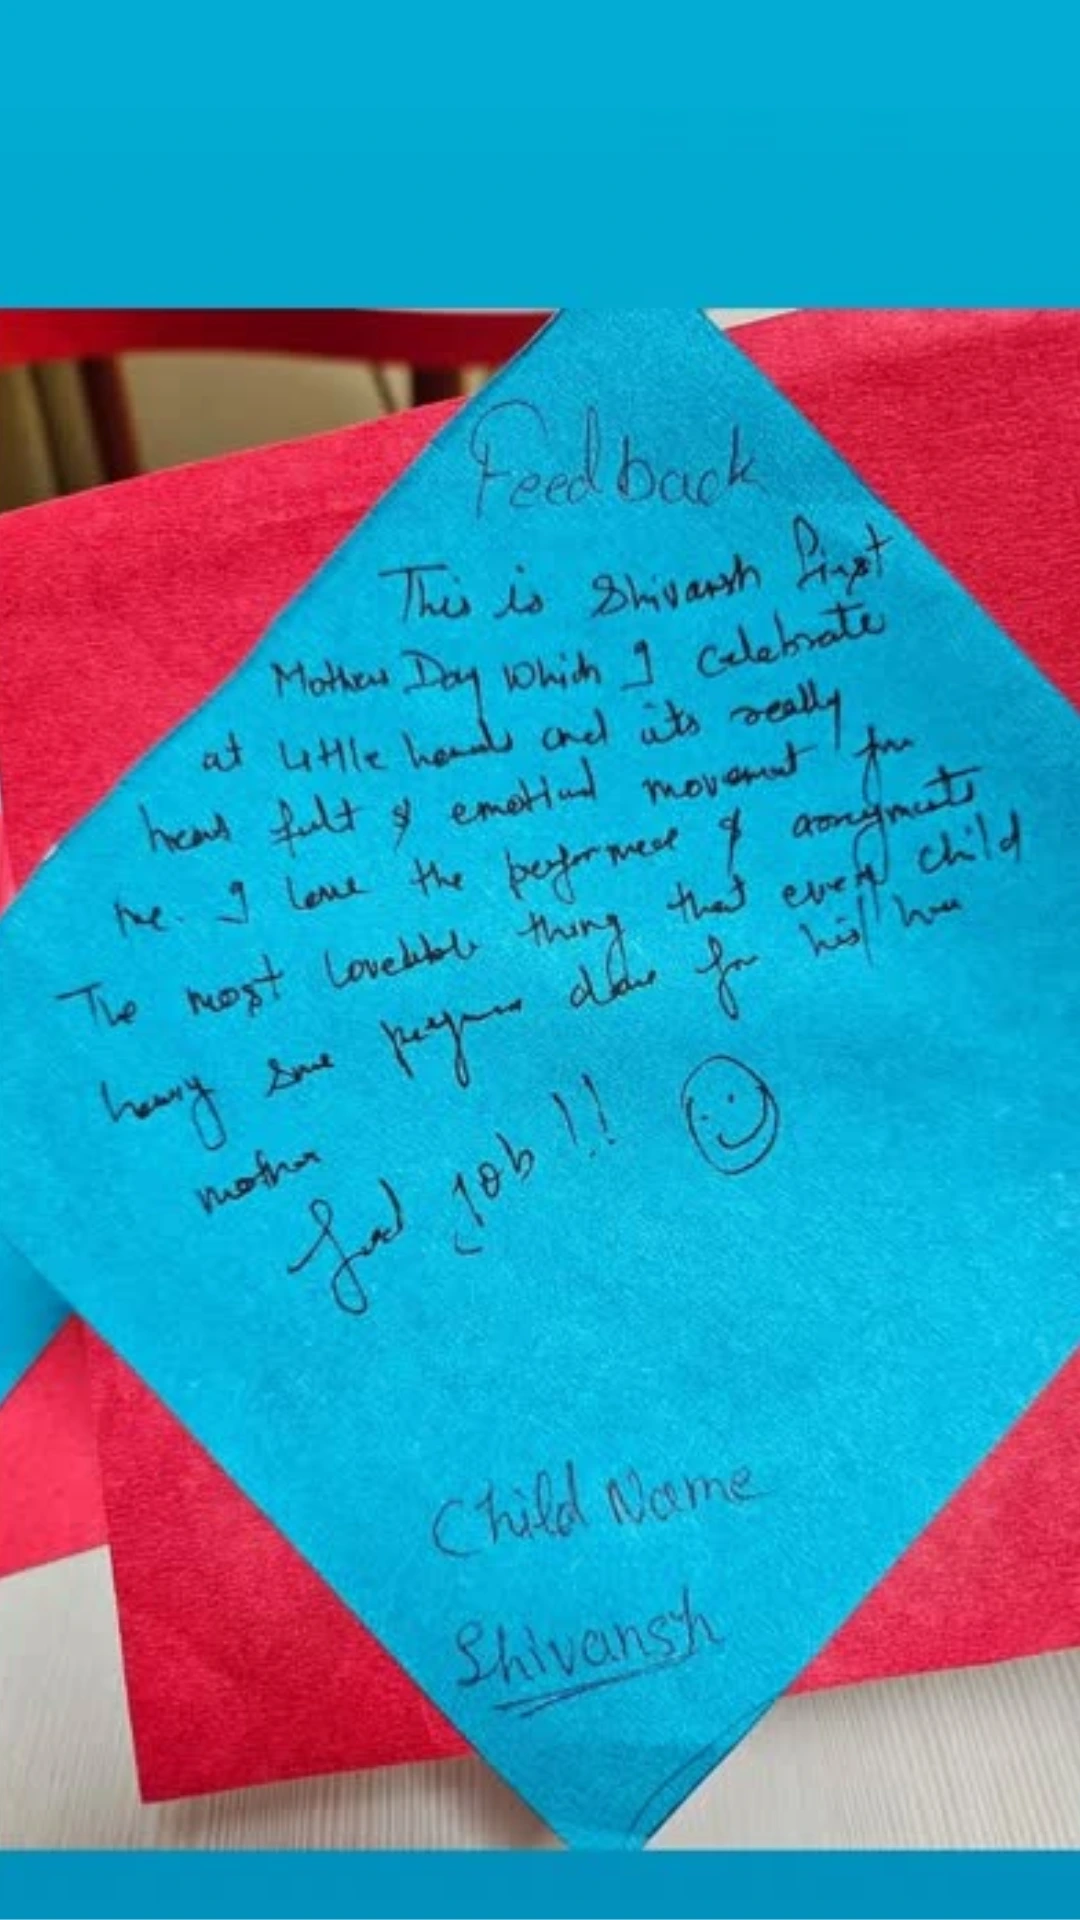 Feedback
This is Shivansh first
Mothers Day Which I celebrate
at little hands and its really
heart felt & emotional movement for
me. I love the performance & arrangments
The most lovebble thing that every child
having some performance done for his/her
mother
Good job!! ☺
Child Name
Shivansh